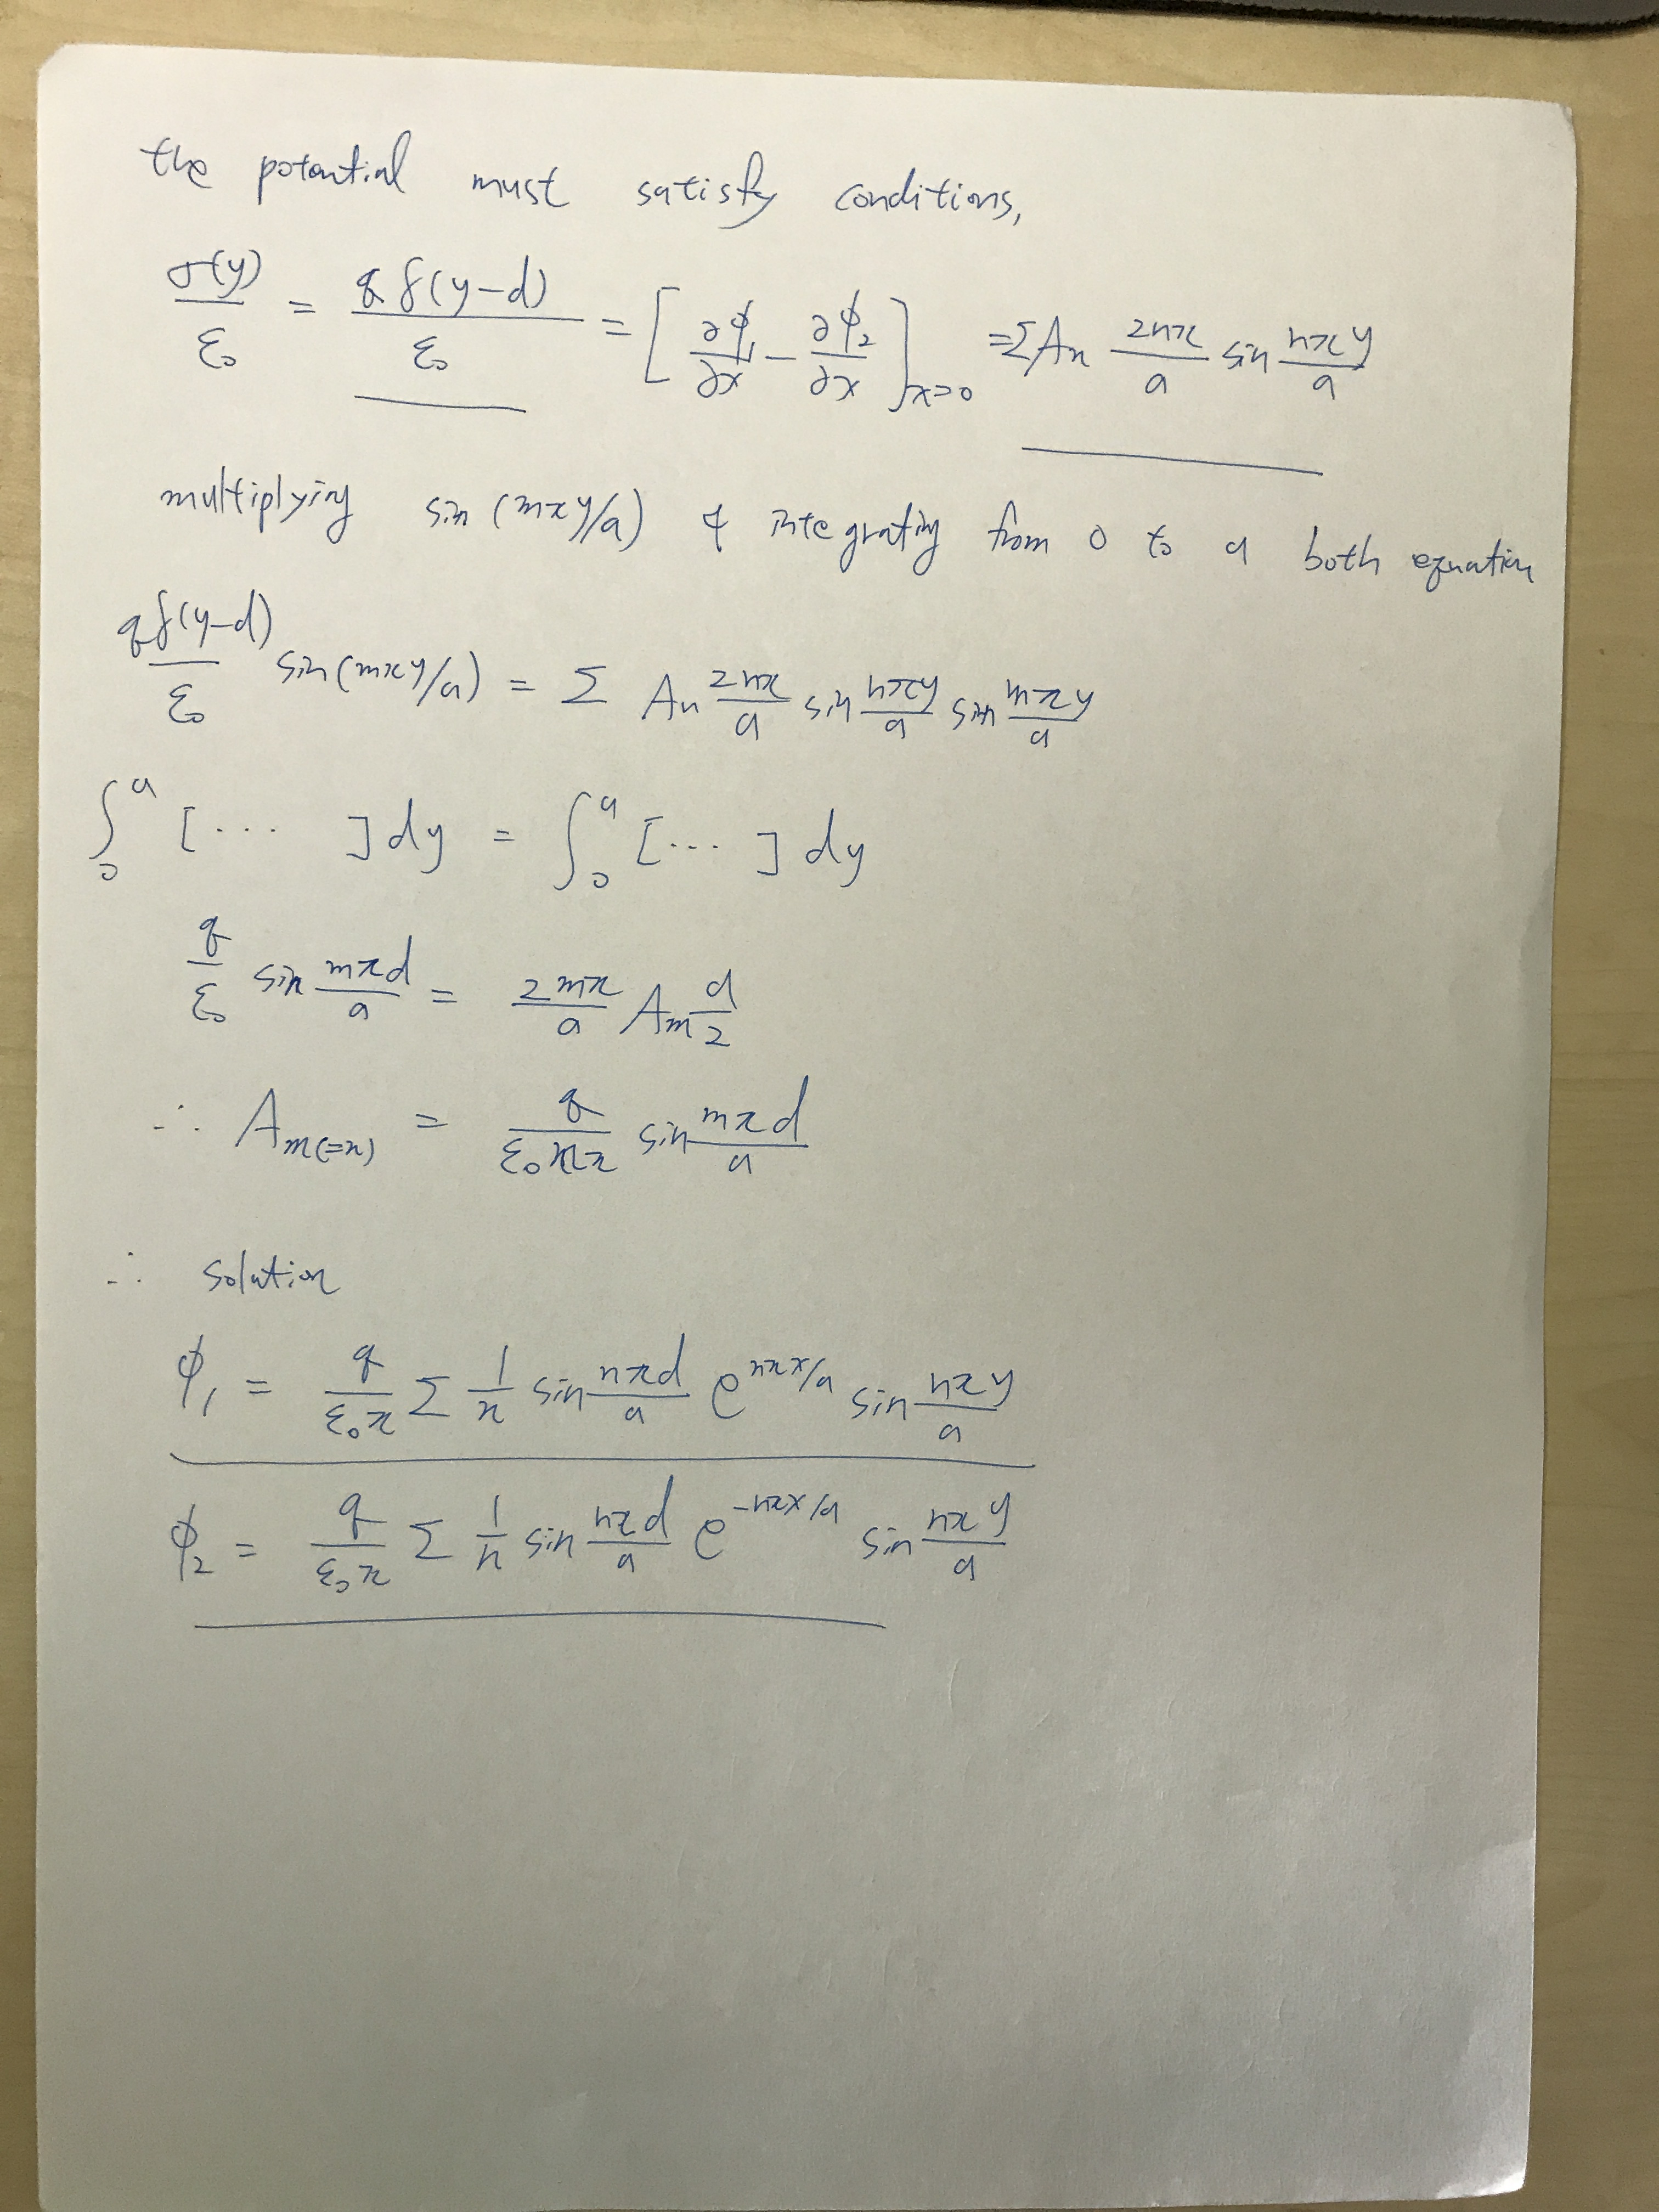 the potential must satisfy conditions,
σ(y)/ε₀ = q δ(y-d)/ε₀ = [∂ϕ₁/∂x - ∂ϕ₂/∂x]ₓ₌₀ = Σ Aₙ 2nπ/a sin nπy/a
multiplying sin (mπy/a) & integrating from 0 to a both equation
qδ(y-d)/ε₀ sin(mπy/a) = Σ Aₙ 2nπ/a sin nπy/a sin mπy/a
∫₀ᵃ [... ] dy = ∫₀ᵃ [... ] dy
q/ε₀ sin mπd/a = 2mπ/a Aₘ d/2
∴ Aₘ₍₌ₙ₎ = q/ε₀nπ sin mπd/a
∴ solution
ϕ₁ = q/ε₀π Σ 1/n sin nπd/a e^{nπx/a} sin nπy/a
ϕ₂ = q/ε₀π Σ 1/n sin nπd/a e^{-nπx/a} sin nπy/a